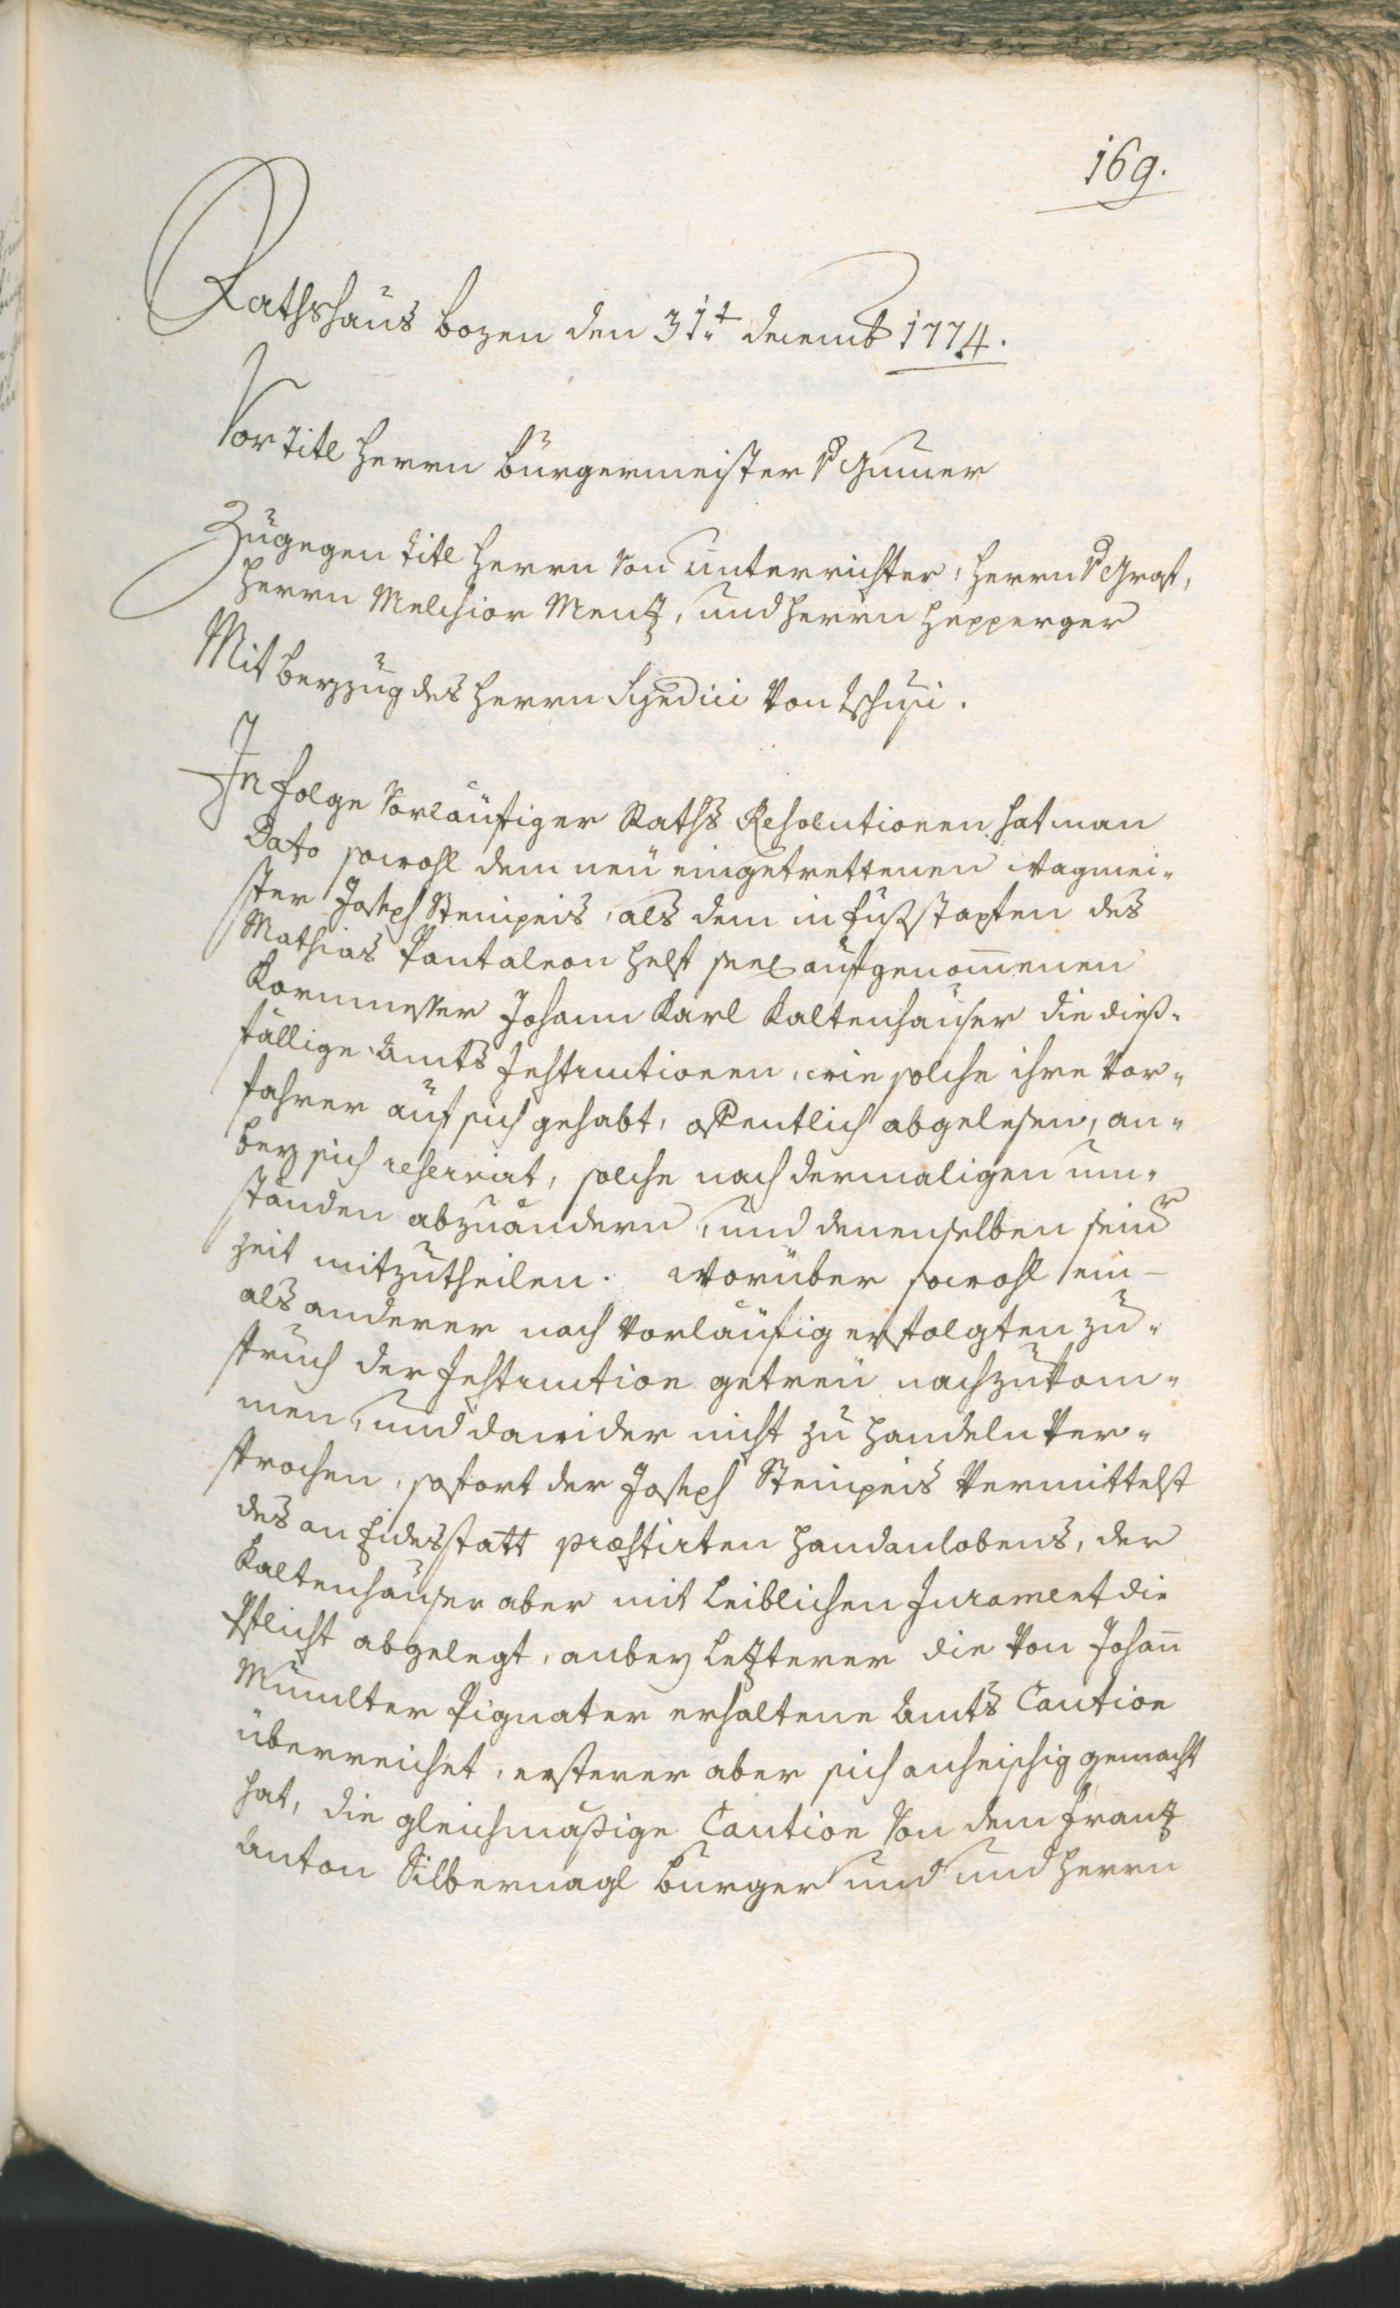 169.
Rathshaus Bozen den 31t. decemb 1774.
Vor Titl Herrn Bürgermeister v Gumer
Zugegen Titl Herrn von unterrichter, Herrn v Graf,
Herrn Melchior Mentz, und Herrn Hepperger
Mit beyzug des Herrn Syndici von Tschusi.
In folge vorläufiger Raths Resolutionen hat man
Dato sowohl dem neü eingetrettenen Wagmei-
ster Joseph Steinpeis, als dem in fußstapfen des
Mathias Pantaleon Helf seel aufgenommenen
Kornmesser Johann Karl Kaltenhauser die dieß-
fällige Amts Instructionen, wie solche ihre Vor-
fahrer auf sich gehabt, offentlich abgelesen, an-
bey sich reservirt, solche nach dermaligen um-
ständen abzuändern, und denenselben seinr
zeit mitzutheilen. Worüber sowohl ein-
als anderer nach vorläufig erfolgten zu-
spruch der Instruction getreü nachzukom-
men, und dawider nicht zu handeln ver-
sprochen, sofort der Joseph Steinpeis vermittelst
des an Eidesstatt præstirten Handanlobens, der
Kaltenhauser aber mit leiblichen Jurament die
Pflicht abgelegt, anbey letzterer die von Johann
Pignater erhaltene Amts Caution
überreichet, ersterer aber sich anheischig gemacht
hat, die gleichmäßige Caution von dem Frantz
Anton Silbernagl Burger und und Herrn